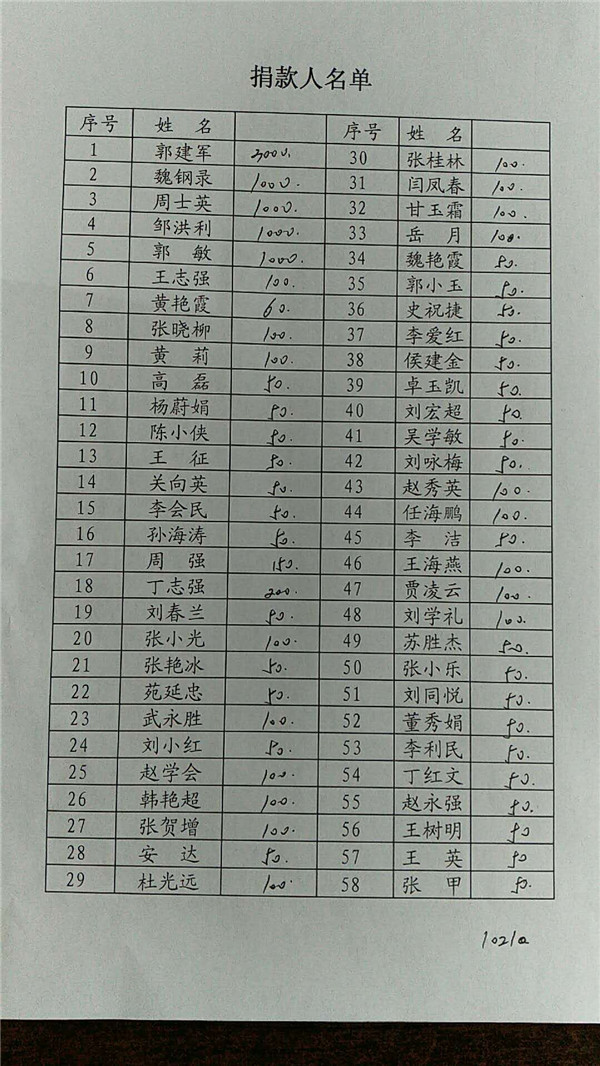 捐款人名单
序号 姓 名 序号 姓 名
1 郭建军 30 张桂林 100.
2 魏钢录 1000. 31 闫凤春 100.
3 周士英 1000. 32 甘玉霜 100.
4 邹洪利 1000. 33 岳 月 100.
5 郭 敏 1000. 34 魏艳霞 50.
6 王志强 100. 35 郭小玉 50.
7 黄艳霞 60. 36 史祝捷 50.
8 张晓柳 100. 37 李爱红 50.
9 黄 莉 100. 38 侯建金 50.
10 高 磊 50. 39 卓玉凯 50.
11 杨蔚娟 50. 40 刘宏超 50.
12 陈小侠 50. 41 吴学敏 50.
13 王 征 50. 42 刘咏梅 50.
14 关向英 50. 43 赵秀英 100.
15 李会民 50. 44 任海鹏 100.
16 孙海涛 50. 45 李 洁 50.
17 周 强 150. 46 王海燕 100.
18 丁志强 200. 47 贾凌云 100.
19 刘春兰 50. 48 刘学礼 100.
20 张小光 100. 49 苏胜杰 50.
21 张艳冰 50. 50 张小乐 50.
22 苑延忠 50. 51 刘同悦 50.
23 武永胜 100. 52 董秀娟 50.
24 刘小红 50. 53 李利民 50.
25 赵学会 100. 54 丁红文 50.
26 韩艳超 100. 55 赵永强 50.
27 张贺增 100. 56 王树明 50
28 安 达 50. 57 王 英 50
29 杜光远 100. 58 张 甲 50.
10210